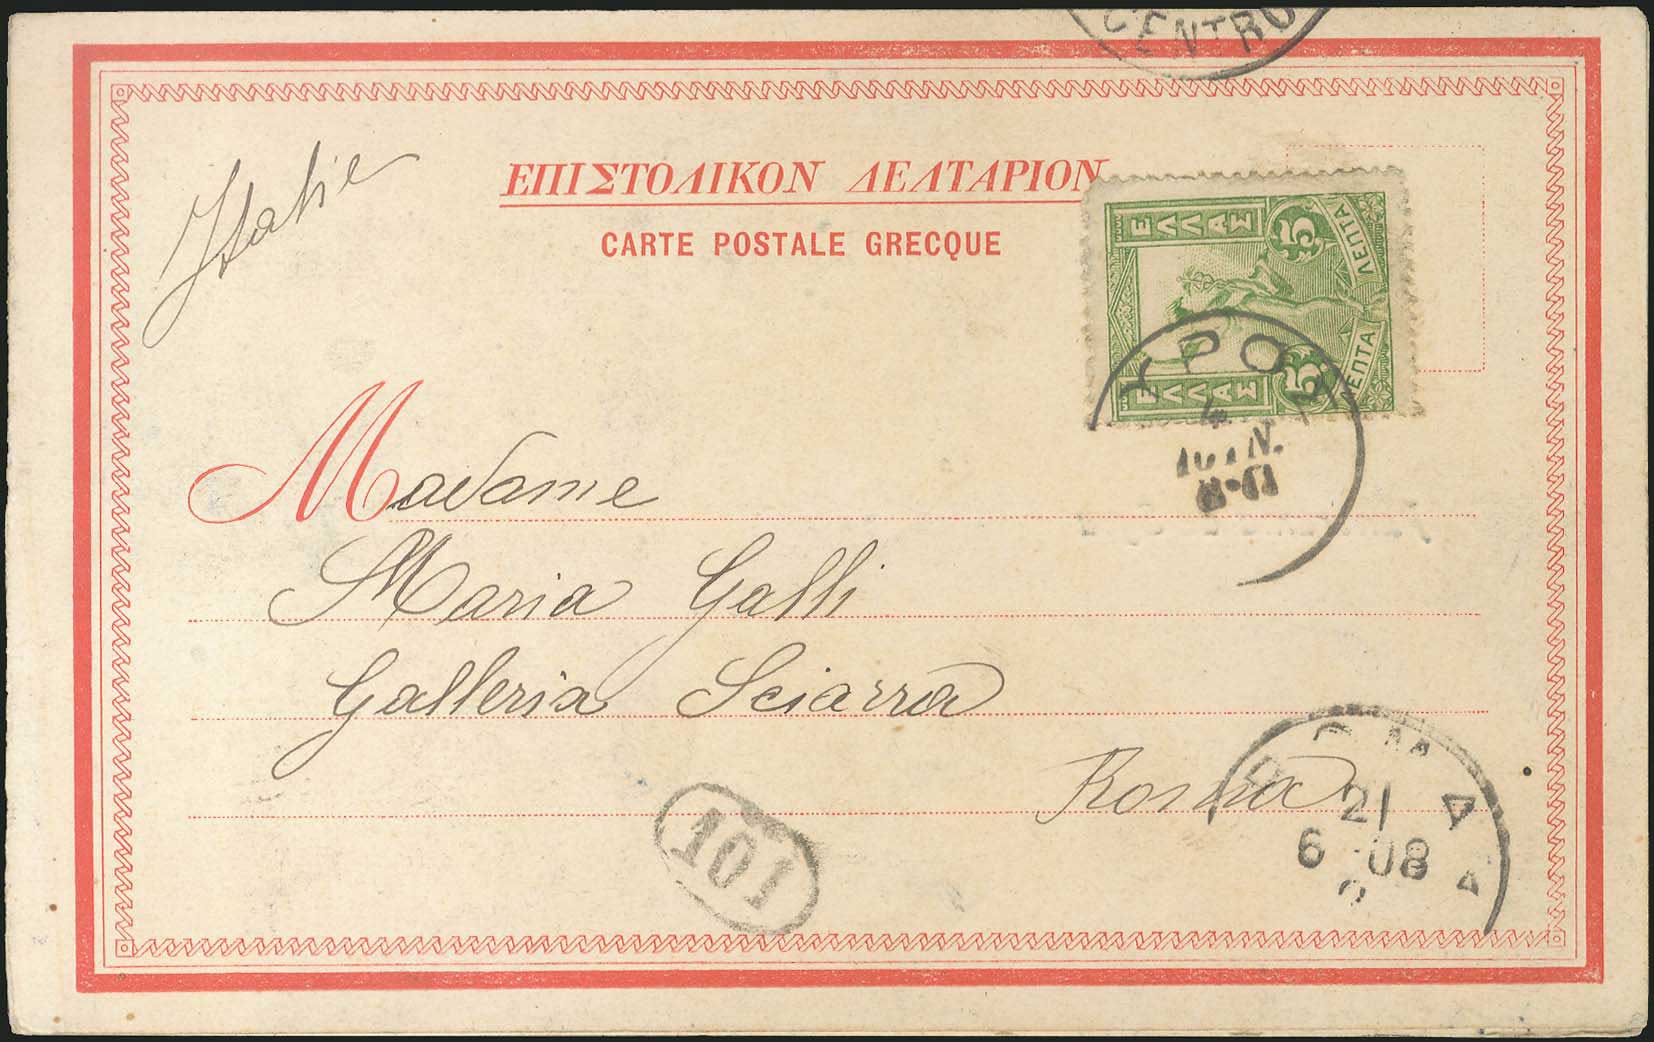 CENTRO
Italie
ΕΠΙΣΤΟΛΙΚΟΝ ΔΕΛΤΑΡΙΟΝ
CARTE POSTALE GRECQUE
ΕΛΛΑΣ 5 ΛΕΠΤΑ
ΕΛΛΑΣ 5 ΛΕΠΤΑ
4
ΙΟΥΝ.
Madame
Maria Galli
Galleria Sciarra
Roma
ROMA
21
6 08
101